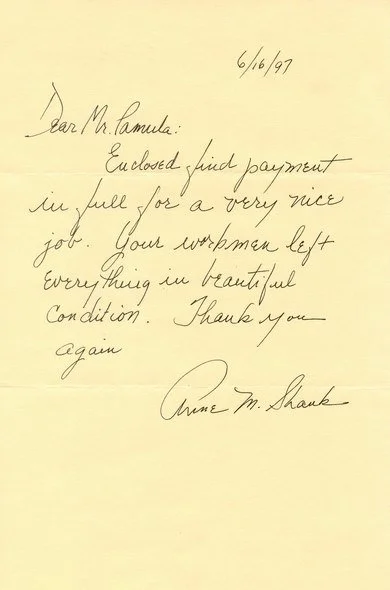 6/16/97
Dear Mr. Pamula:
Enclosed find payment
in full for a very nice
job. Your workmen left
everything in beautiful
condition. Thank you
again
Anne M. Shank